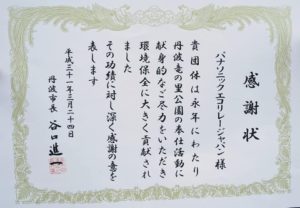 感謝状
パナソニックエコリレージャパン様
貴団体は永年にわたり
丹波竜の里公園の奉仕活動に
献身的なご尽力をいただき
環境保全に大きく貢献され
ました
その功績に対し深く感謝の意を
表します
平成三十一年三月二十四日
丹波市長 谷口進一